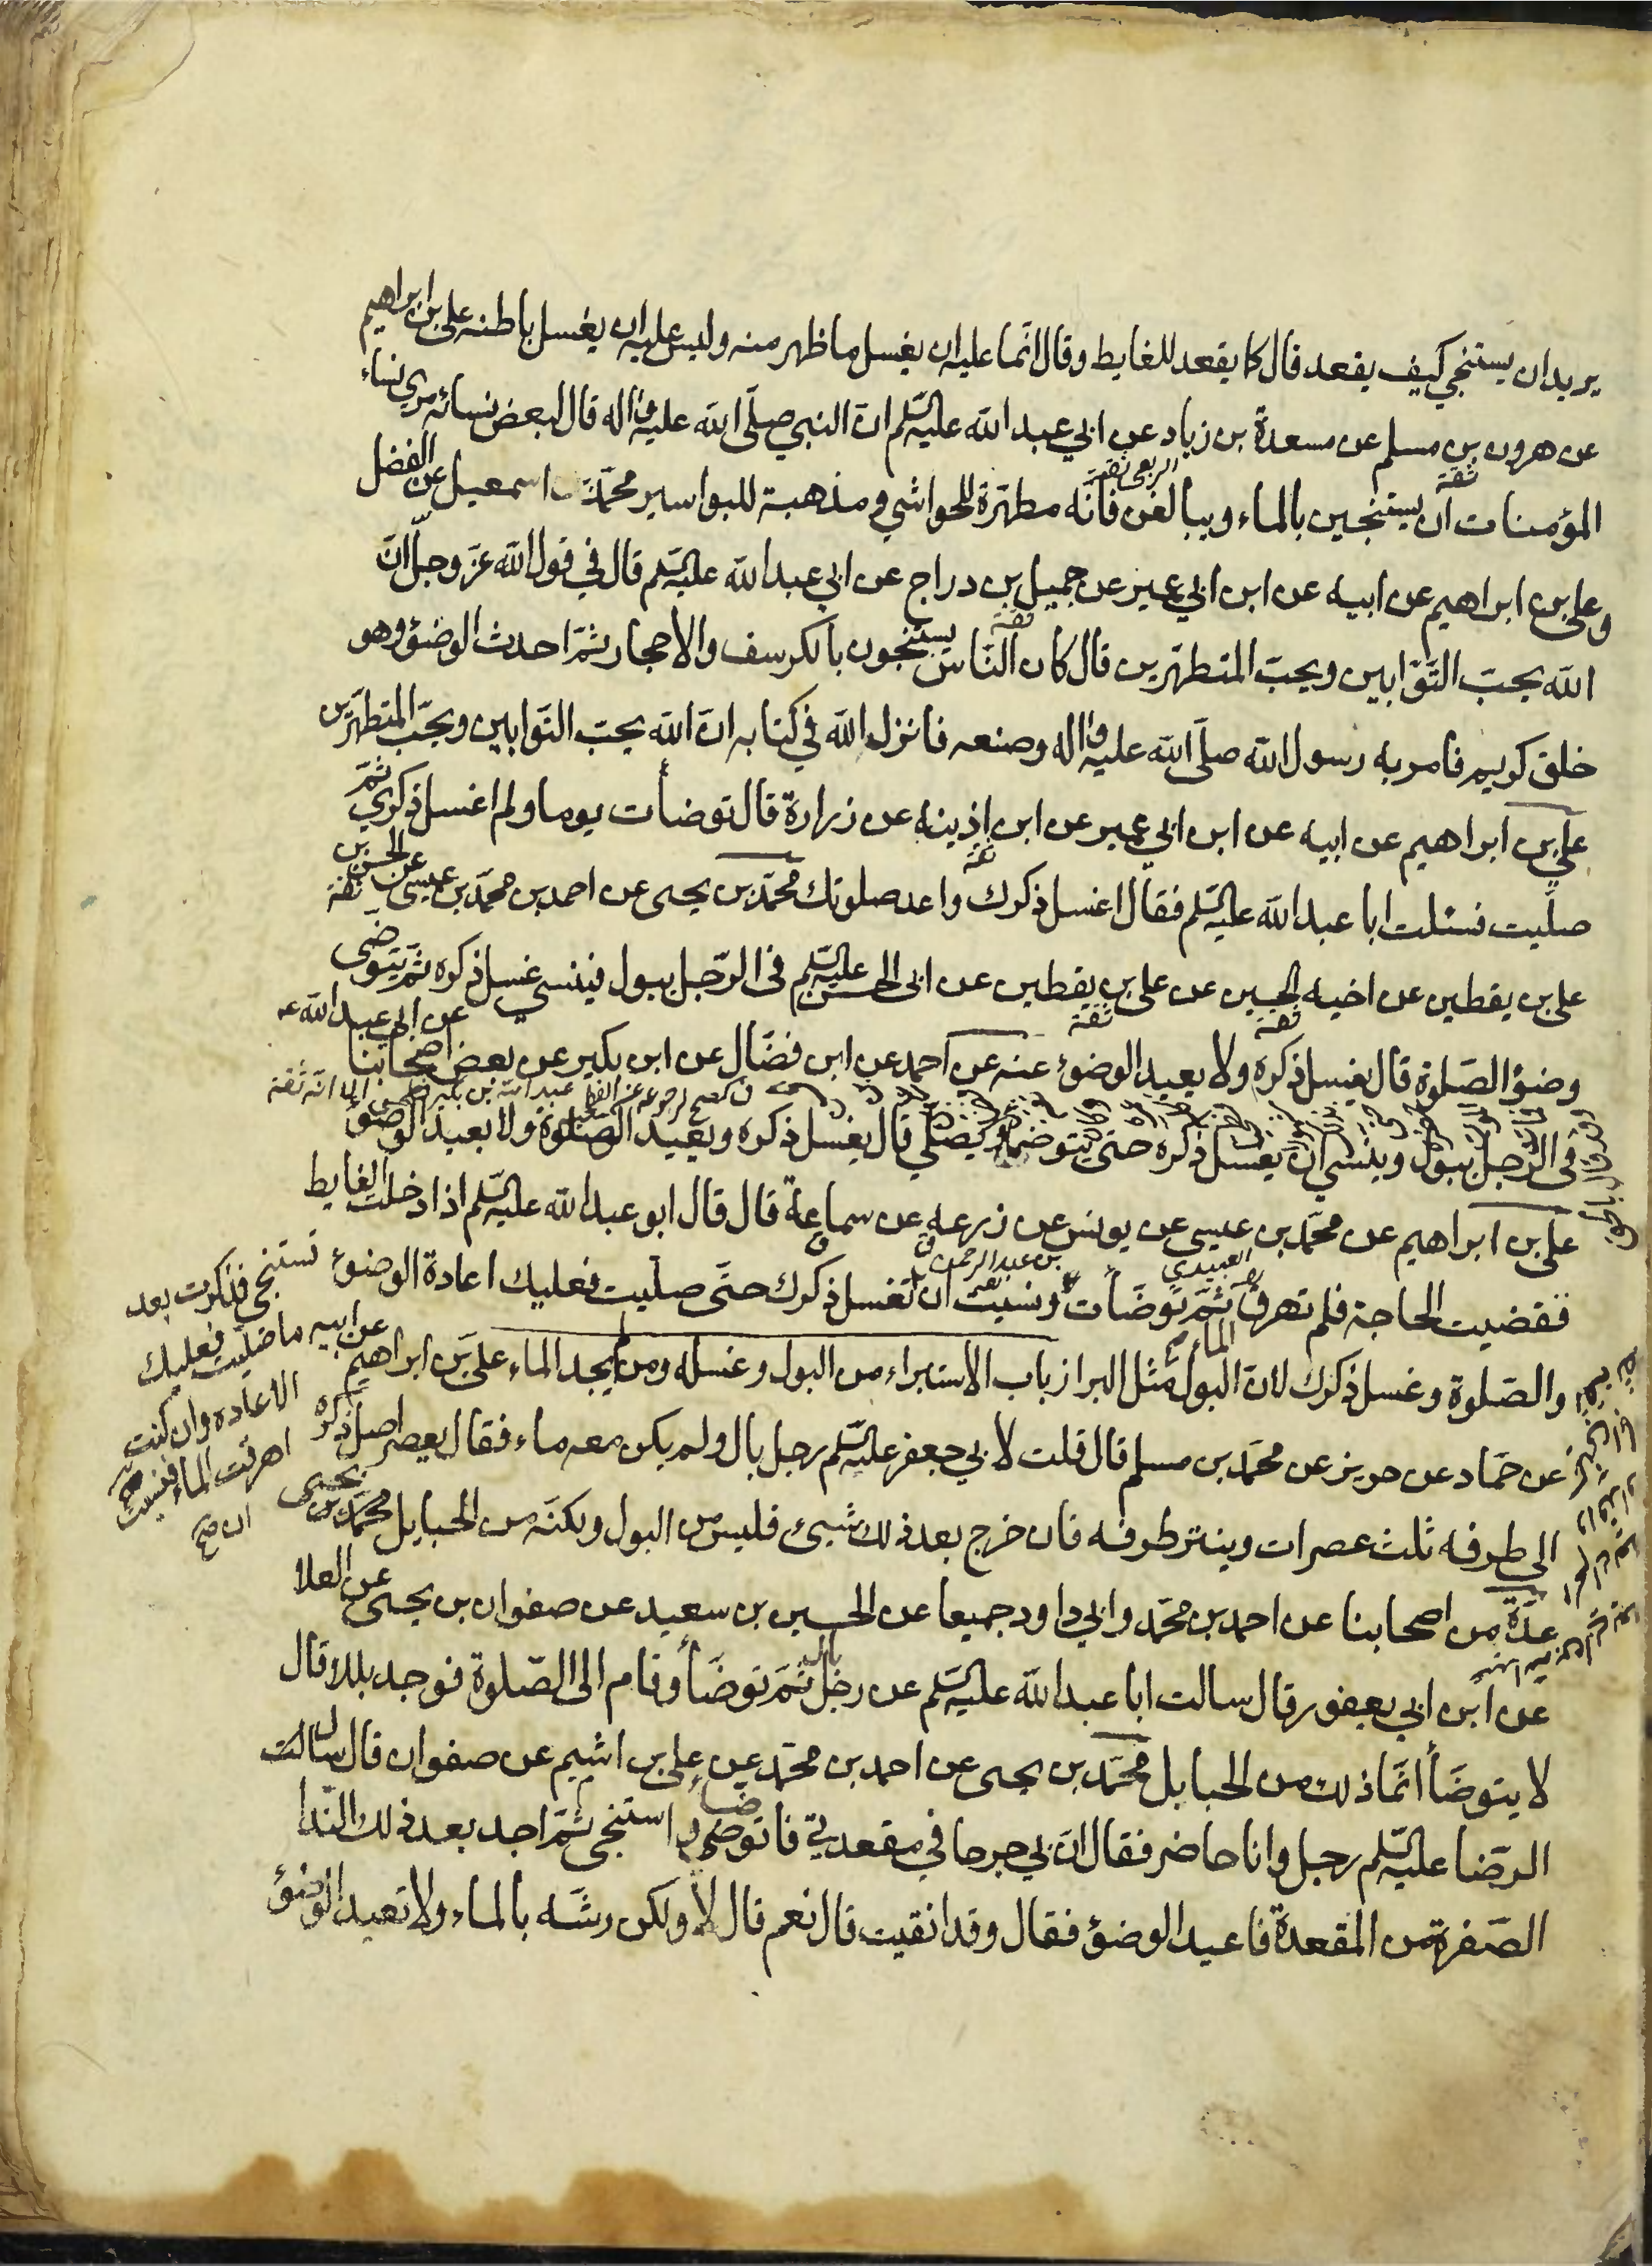 يريد ان يستنجي كيف يقعد قال كما يقعد للغايط وقال انّما عليه ان يغسل ما ظهر منه وليس عليه ان يغسل باطنه علي بن ابراهيم
عن هرون بن مسلم عن مسعدة بن زياد عن ابي عبد الله عليه السّلم انّ النبي صلّى الله عليه واله قال لبعض نسائه مري نساء
ثقة الربعي ثقة
المؤمنات ان يستنجين بالماء ويبالغن فانّه مطهّرة للحواشي ومذهبة للبواسير محمّد بن اسمعيل عن الفضل
وعلي بن ابراهيم عن ابيه عن ابن ابي عمير عن جميل بن دراج عن ابي عبد الله عليه السّلم قال في قول الله عزّ وجلّ انّ
ثقة
الله يحبّ التّوّابين ويحبّ المتطهّرين قال كان النّاس يستنجون بالكرسف والاحجار ثمّ احدث الوضوؤ وهو
خلق كريم فامر به رسول الله صلّى الله عليه واله وصنعه فانزل الله في كتابه انّ الله يحبّ التّوابين ويحبّ المتطهّرين
علي بن ابراهيم عن ابيه عن ابن ابي عمير عن ابن اذينه عن زرارة قال توضأت يوما ولم اغسل ذكري ثمّ
ثقة
صلّيت فسئلت ابا عبد الله عليه السّلم فقال اغسل ذكرك واعد صلوتك محمّد بن يحيى عن احمد بن محمّد بن عيسى عن الحسن بن
ثقة
علي بن يقطين عن اخيه الحسين عن علي بن يقطين عن ابي الحسن عليه السّلم في الرّجل يبول فينسى غسل ذكره ثمّ يتوضّى
ثقة ثقة
وضوؤ الصّلوة قال يغسل ذكره ولا يعيد الوضوؤ عنه عن احمد عن ابن فضّال عن ابن بكير عن بعض اصحابنا عن ابي عبد الله ع
عبد الله بن بكير فطحي الا انّه ثقة
في الرّجل يبول وينسى ان يغسل ذكره حتى يتوضا ويصلّي قال يغسل ذكره ويعيد الصّلوة ولا يعيد الوضوؤ
علي بن ابراهيم عن محمّد بن عيسى عن يونس عن زرعه عن سماعة قال قال ابو عبد الله عليه السّلم اذا دخلت الغايط
العبيدي بن عبد الرحمن
فقضيت الحاجة فلم تهرق الماء ثمّ توضّأت ونسيت ان تغسل ذكرك حتّى صلّيت فعليك اعادة الوضوؤ
تستنجي فذكرت بعد
ما صلّيت فعليك
الاعاده وان كنت
اهرقت الماء فنسيت
ان صح
والصّلوة وغسل ذكرك لانّ البول مثل البراز باب الاستبراء من البول وغسله ومن لم يجد الماء علي بن ابراهيم عن ابيه
عن حمّاد عن حريز عن محمّد بن مسلم قال قلت لابي جعفر عليه السّلم رجل بال ولم يكن معه ماء فقال يعصر اصل ذكره
الى طرفه ثلث عصرات وينتر طرفه فان خرج بعد ذلك شيئ فليس من البول ولكنّه من الحبايل محمّد بن يحيى
عدّة من اصحابنا عن احمد بن محمّد وابي داود جميعا عن الحسين بن سعيد عن صفوان بن يحيى عن العلا
عن ابن ابي يعفور قال سالت ابا عبد الله عليه السّلم عن رجل بال ثمّ توضّأ وقام الى الصّلوة فوجد بللا قال
لا يتوضّأ انّما ذلك من الحبايل محمّد بن يحيى عن احمد بن محمّد عن علي بن اشيم عن صفوان قال سالت
الرضا عليه السّلم رجل وانا حاضر فقال انّ بي جرحا في مقعدتي فاتوضّأ واستنجي ثمّ اجد بعد ذلك النّدا
الصّفرة من المقعدة فاعيد الوضوؤ فقال وقد انقيت قال نعم قال لا ولكن رشّه بالماء ولا تعيد الوضوؤ